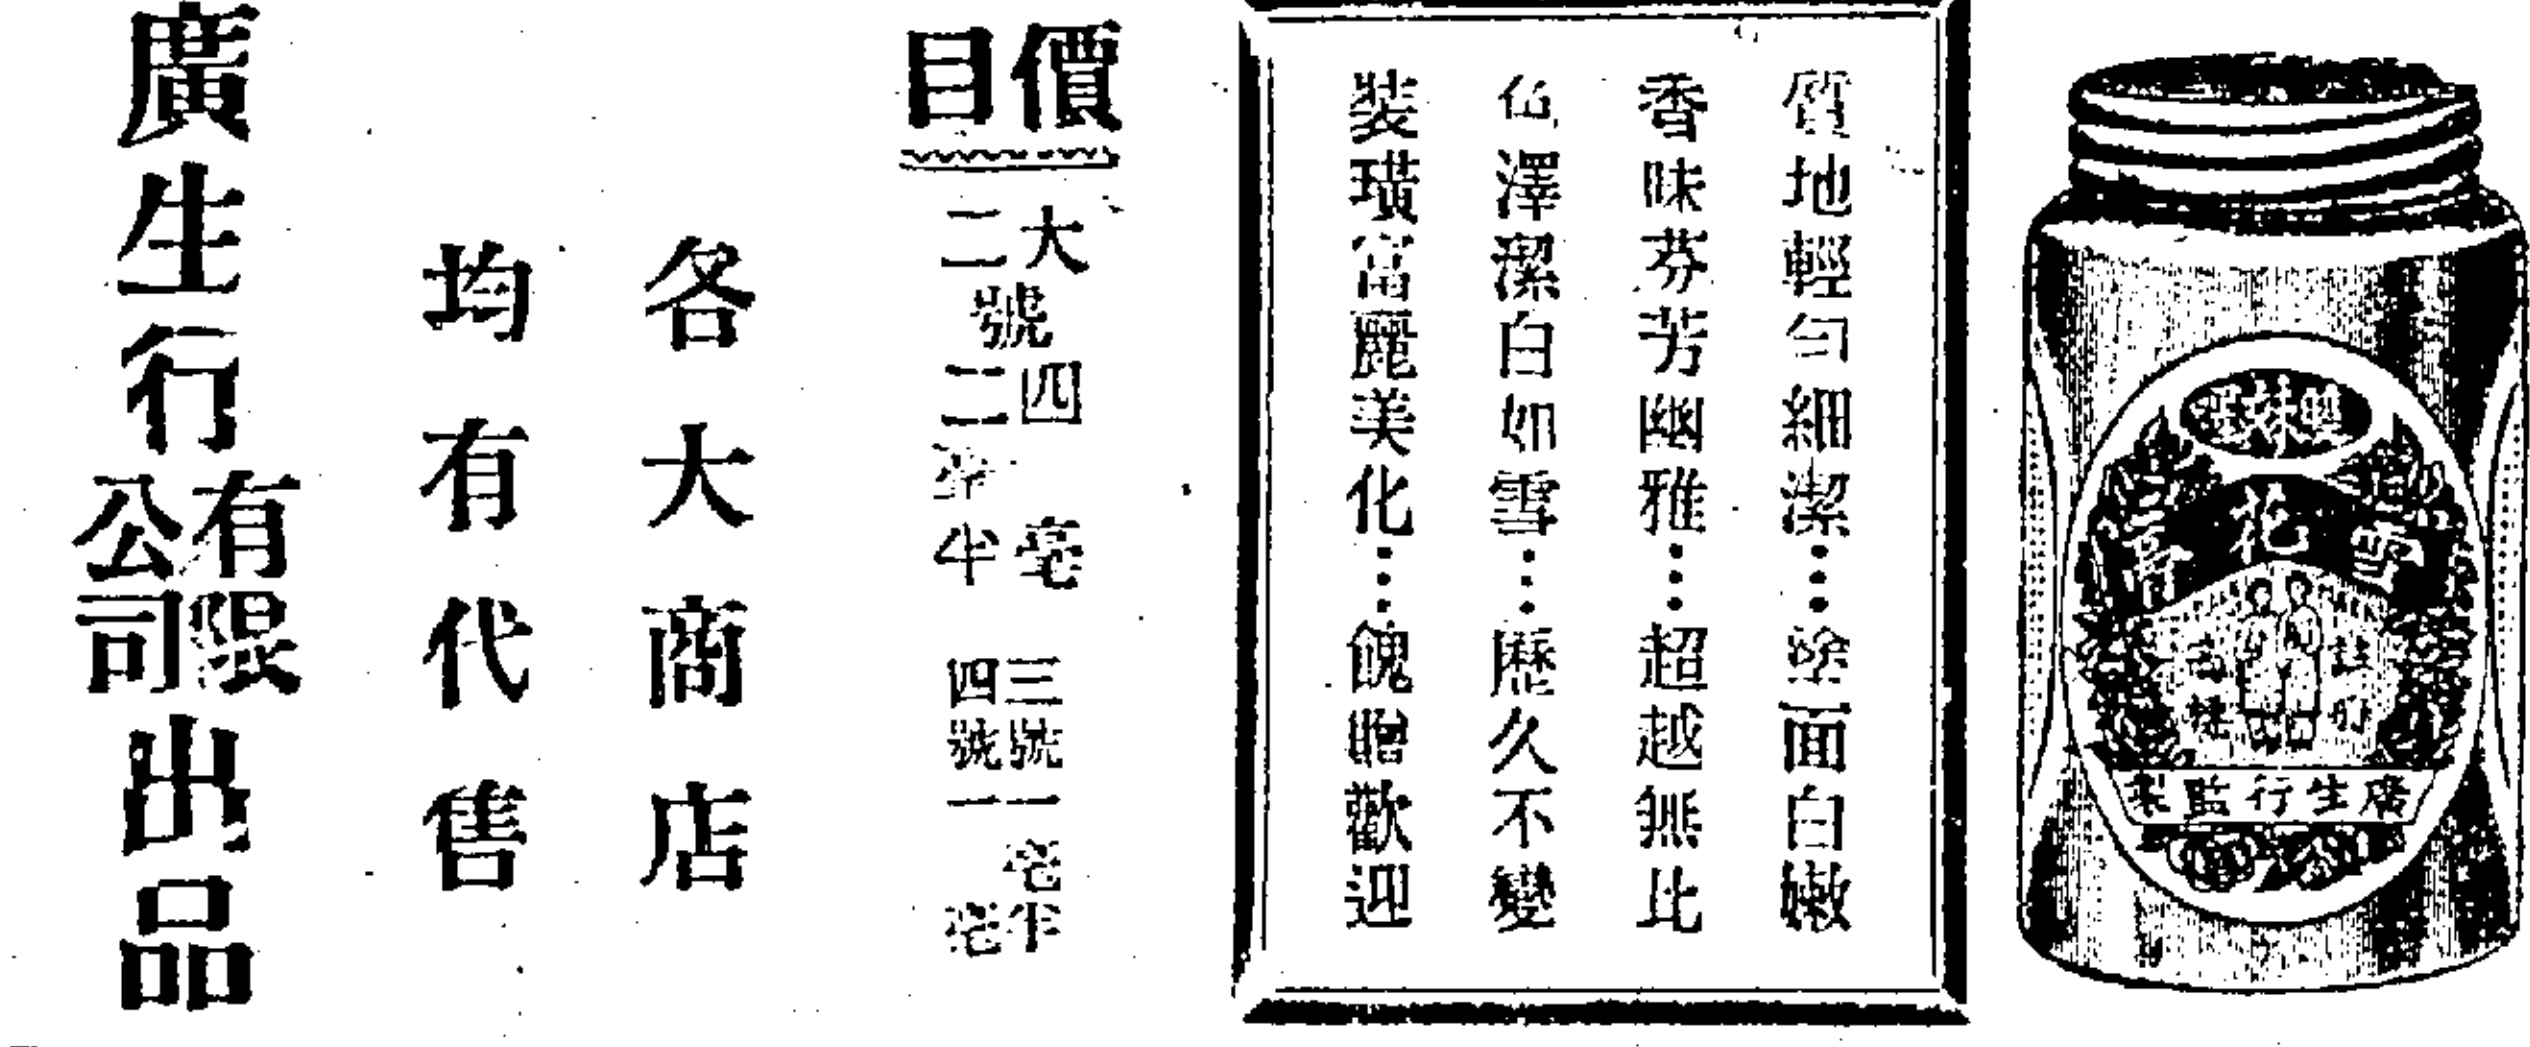 雙妹嚜
雪花膏
註冊
商標
廣生行監製
質地輕勻細潔…塗面白嫩
香味芬芳幽雅…超越無比
色澤潔白如雪…歷久不變
裝璜富麗美化…餽贈歡迎
價目
大號四毫
二號二毫半
三號一毫半
四號一毫
各大商店
均有代售
廣生行有限公司出品